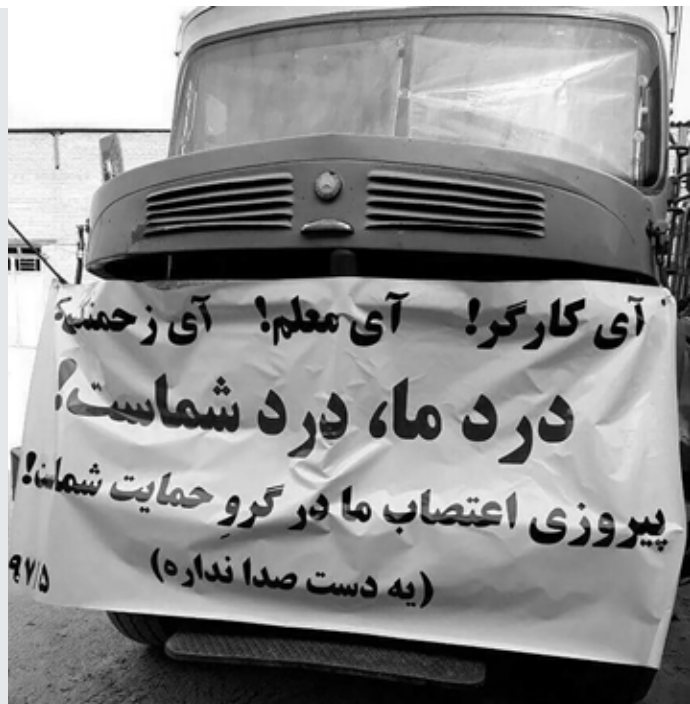 آی کارگر! آی معلم! آی زحمتکش
درد ما، درد شماست!
پیروزی اعتصاب ما در گروِ حمایت شماست!
(یه دست صدا نداره)
۹۷/۵